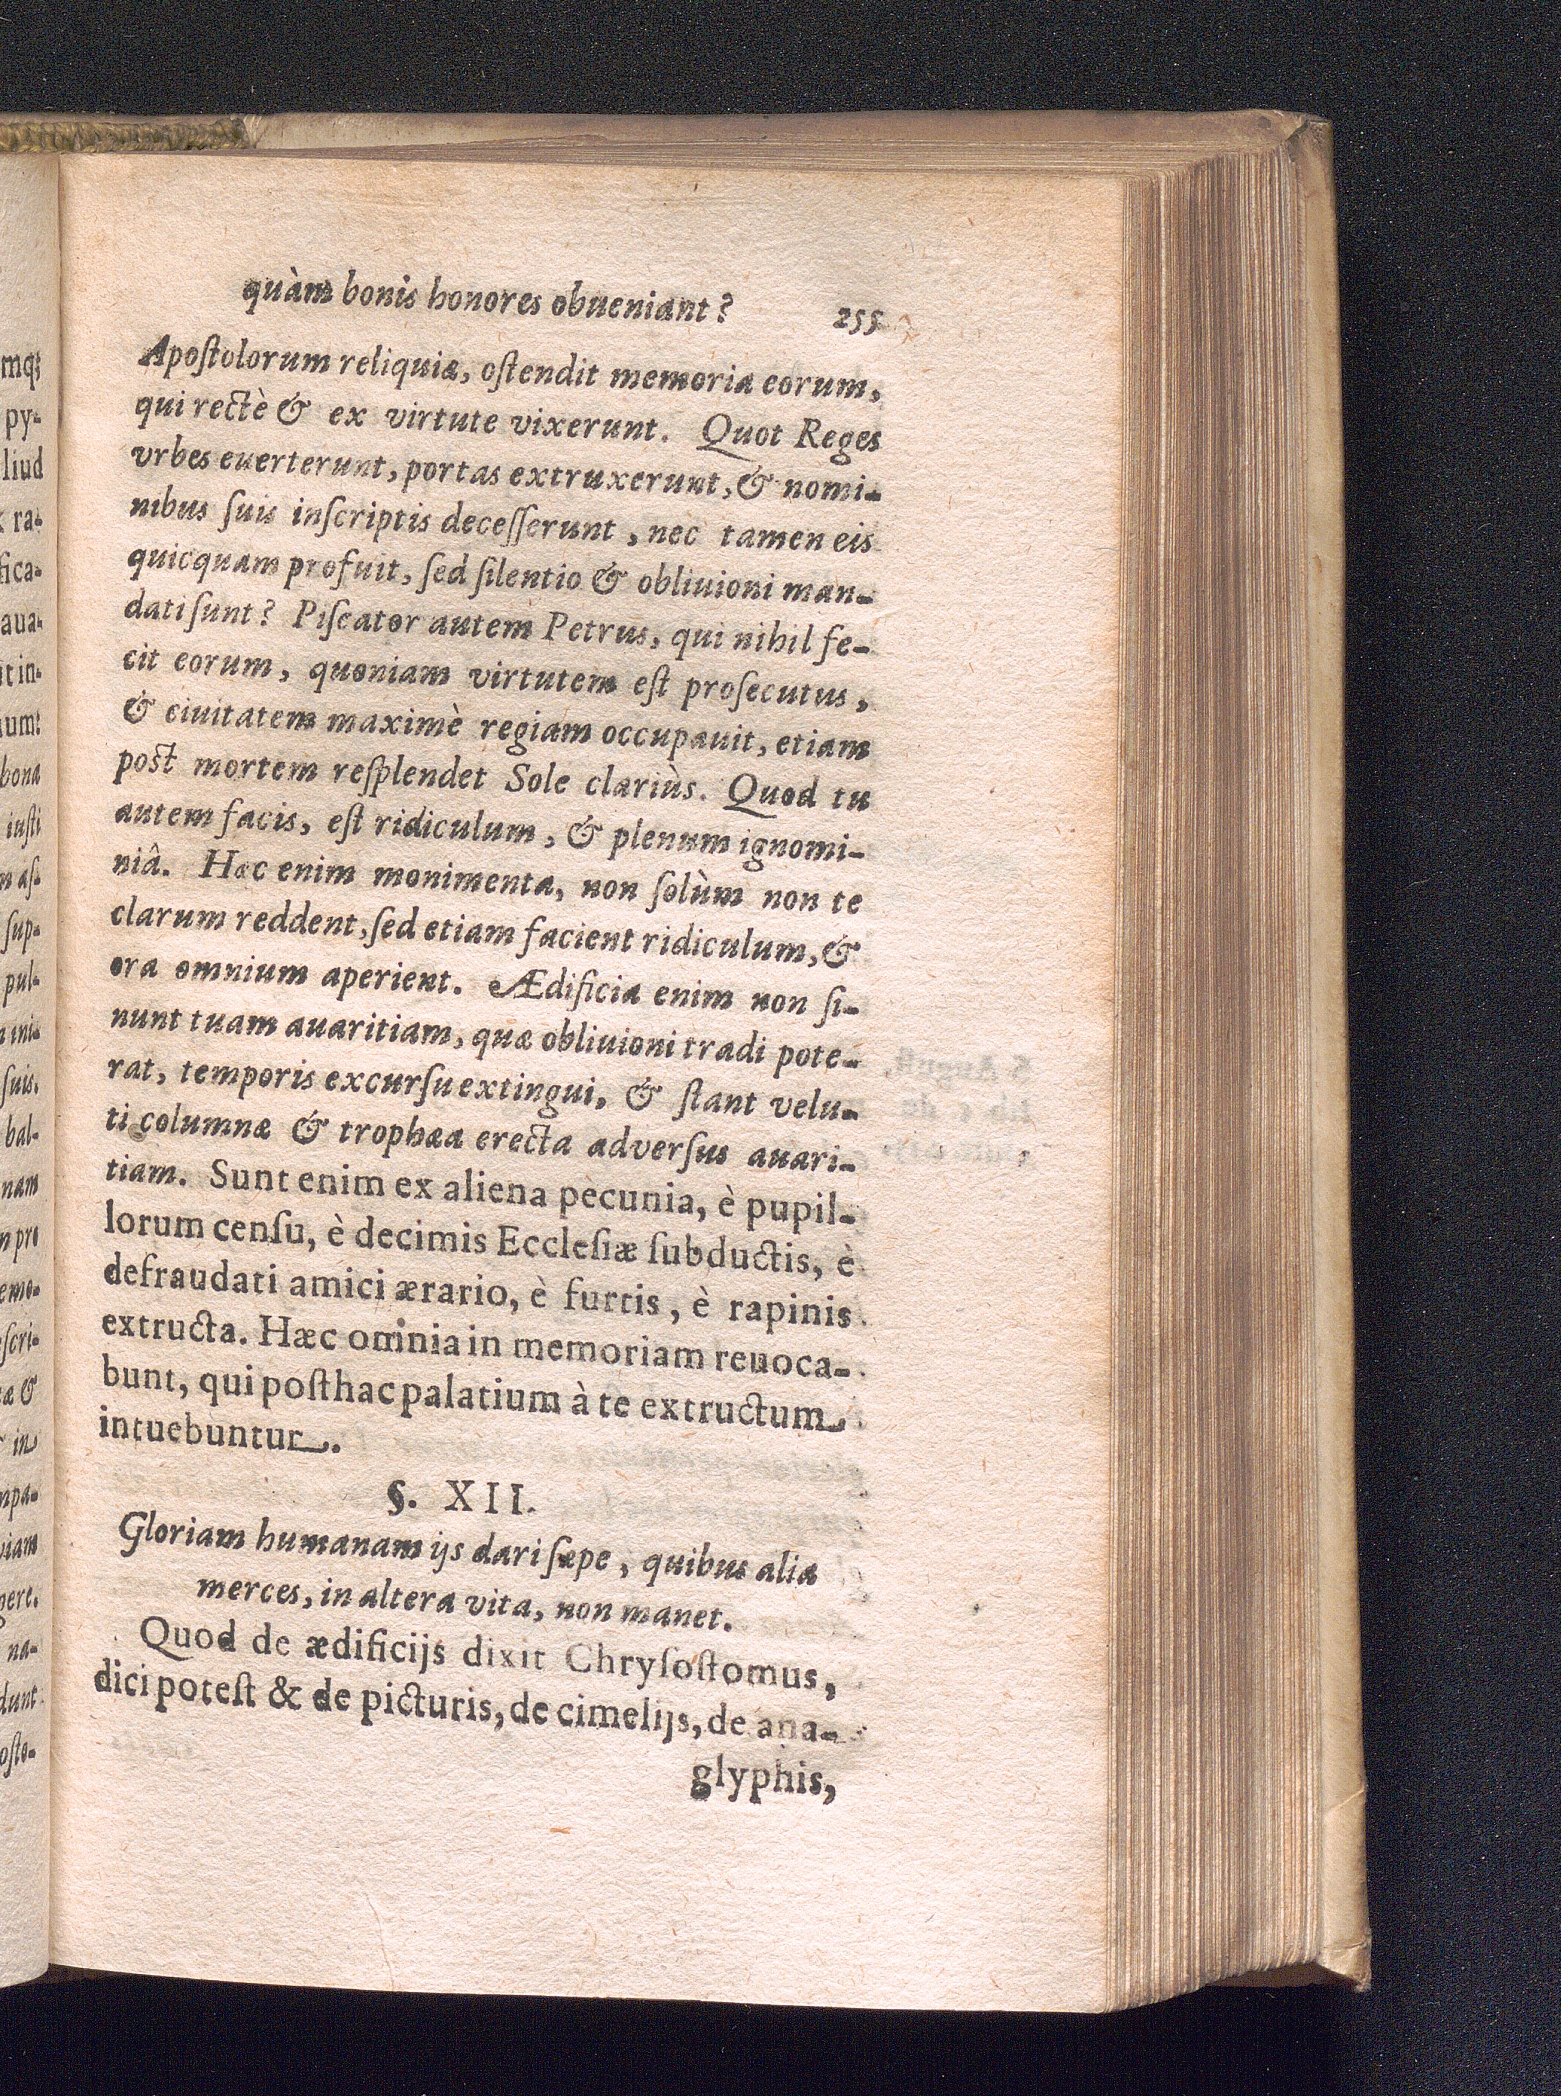 quàm bonis honores obueniant? 255
Apoſtolorum reliquiæ, oſtendit memoria eorum,
qui rectè & ex virtute vixerunt. Quot Reges
vrbes euerterunt, portas extruxerunt, & nomi-
nibus ſuis inſcriptis deceſſerunt, nec tamen eis
quicquam profuit, ſed ſilentio & obliuioni man-
dati ſunt? Piſcator autem Petrus, qui nihil fe-
cit eorum, quoniam virtutem eſt proſecutus,
& ciuitatem maximè regiam occupauit, etiam
poſt mortem reſplendet Sole clariùs. Quod tu
autem facis, eſt ridiculum, & plenum ignomi-
niâ. Hæc enim monimenta, non ſolùm non te
clarum reddent, ſed etiam facient ridiculum, &
ora omnium aperient. Ædificia enim non ſi-
nunt tuam auaritiam, quæ obliuioni tradi pote-
rat, temporis excurſu extingui, & ſtant velu-
ti columnæ & trophæa erecta adverſus auari-
tiam. Sunt enim ex aliena pecunia, è pupil-
lorum cenſu, è decimis Eccleſiæ ſubductis, è
defraudati amici ærario, è furtis, è rapinis
extructa. Hæc omnia in memoriam reuoca-
bunt, qui poſthac palatium à te extructum
intuebuntur.
§. XII.
Gloriam humanam ijs dari ſæpe, quibus alia
merces, in altera vita, non manet.
Quod de ædificijs dixit Chryſoſtomus,
dici poteſt & de picturis, de cimelijs, de ana-
glyphis,